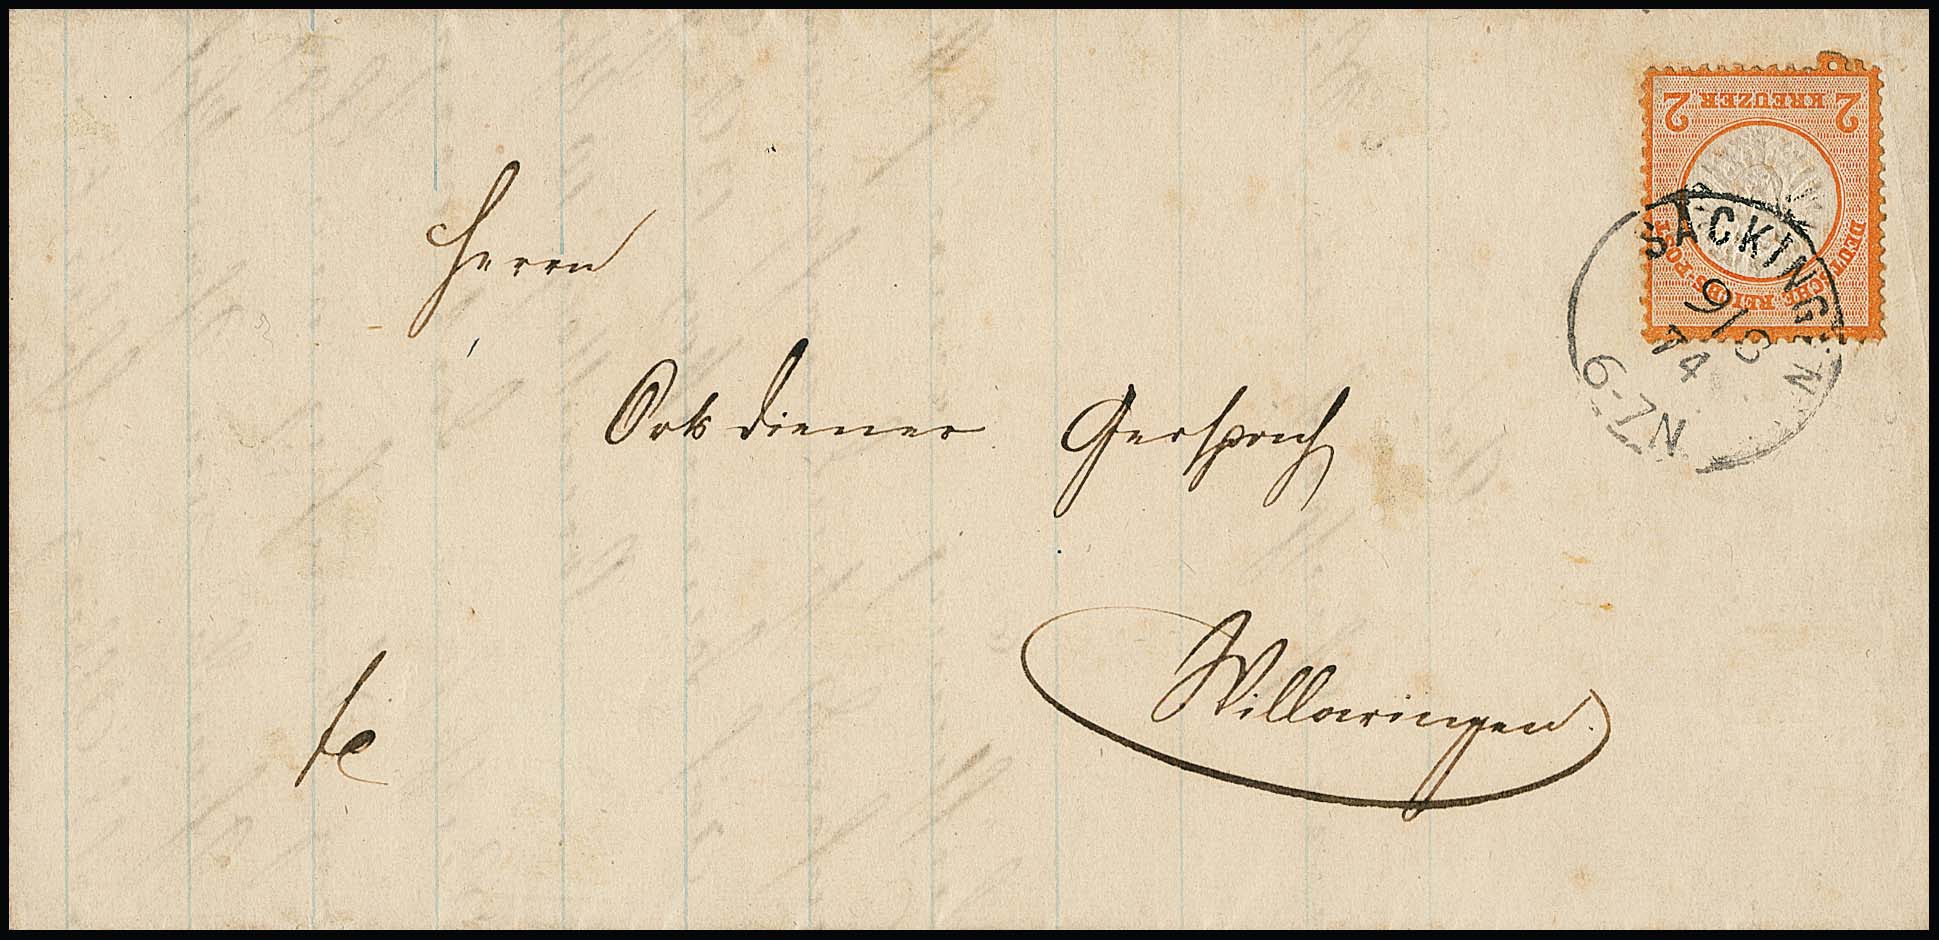 2 KREUZER 2
DEUTSCHE REICHS-POST
SÄCKINGEN
9/3
74
6-7N
Herrn
Ortsdiener Gersprich
Willaringen.